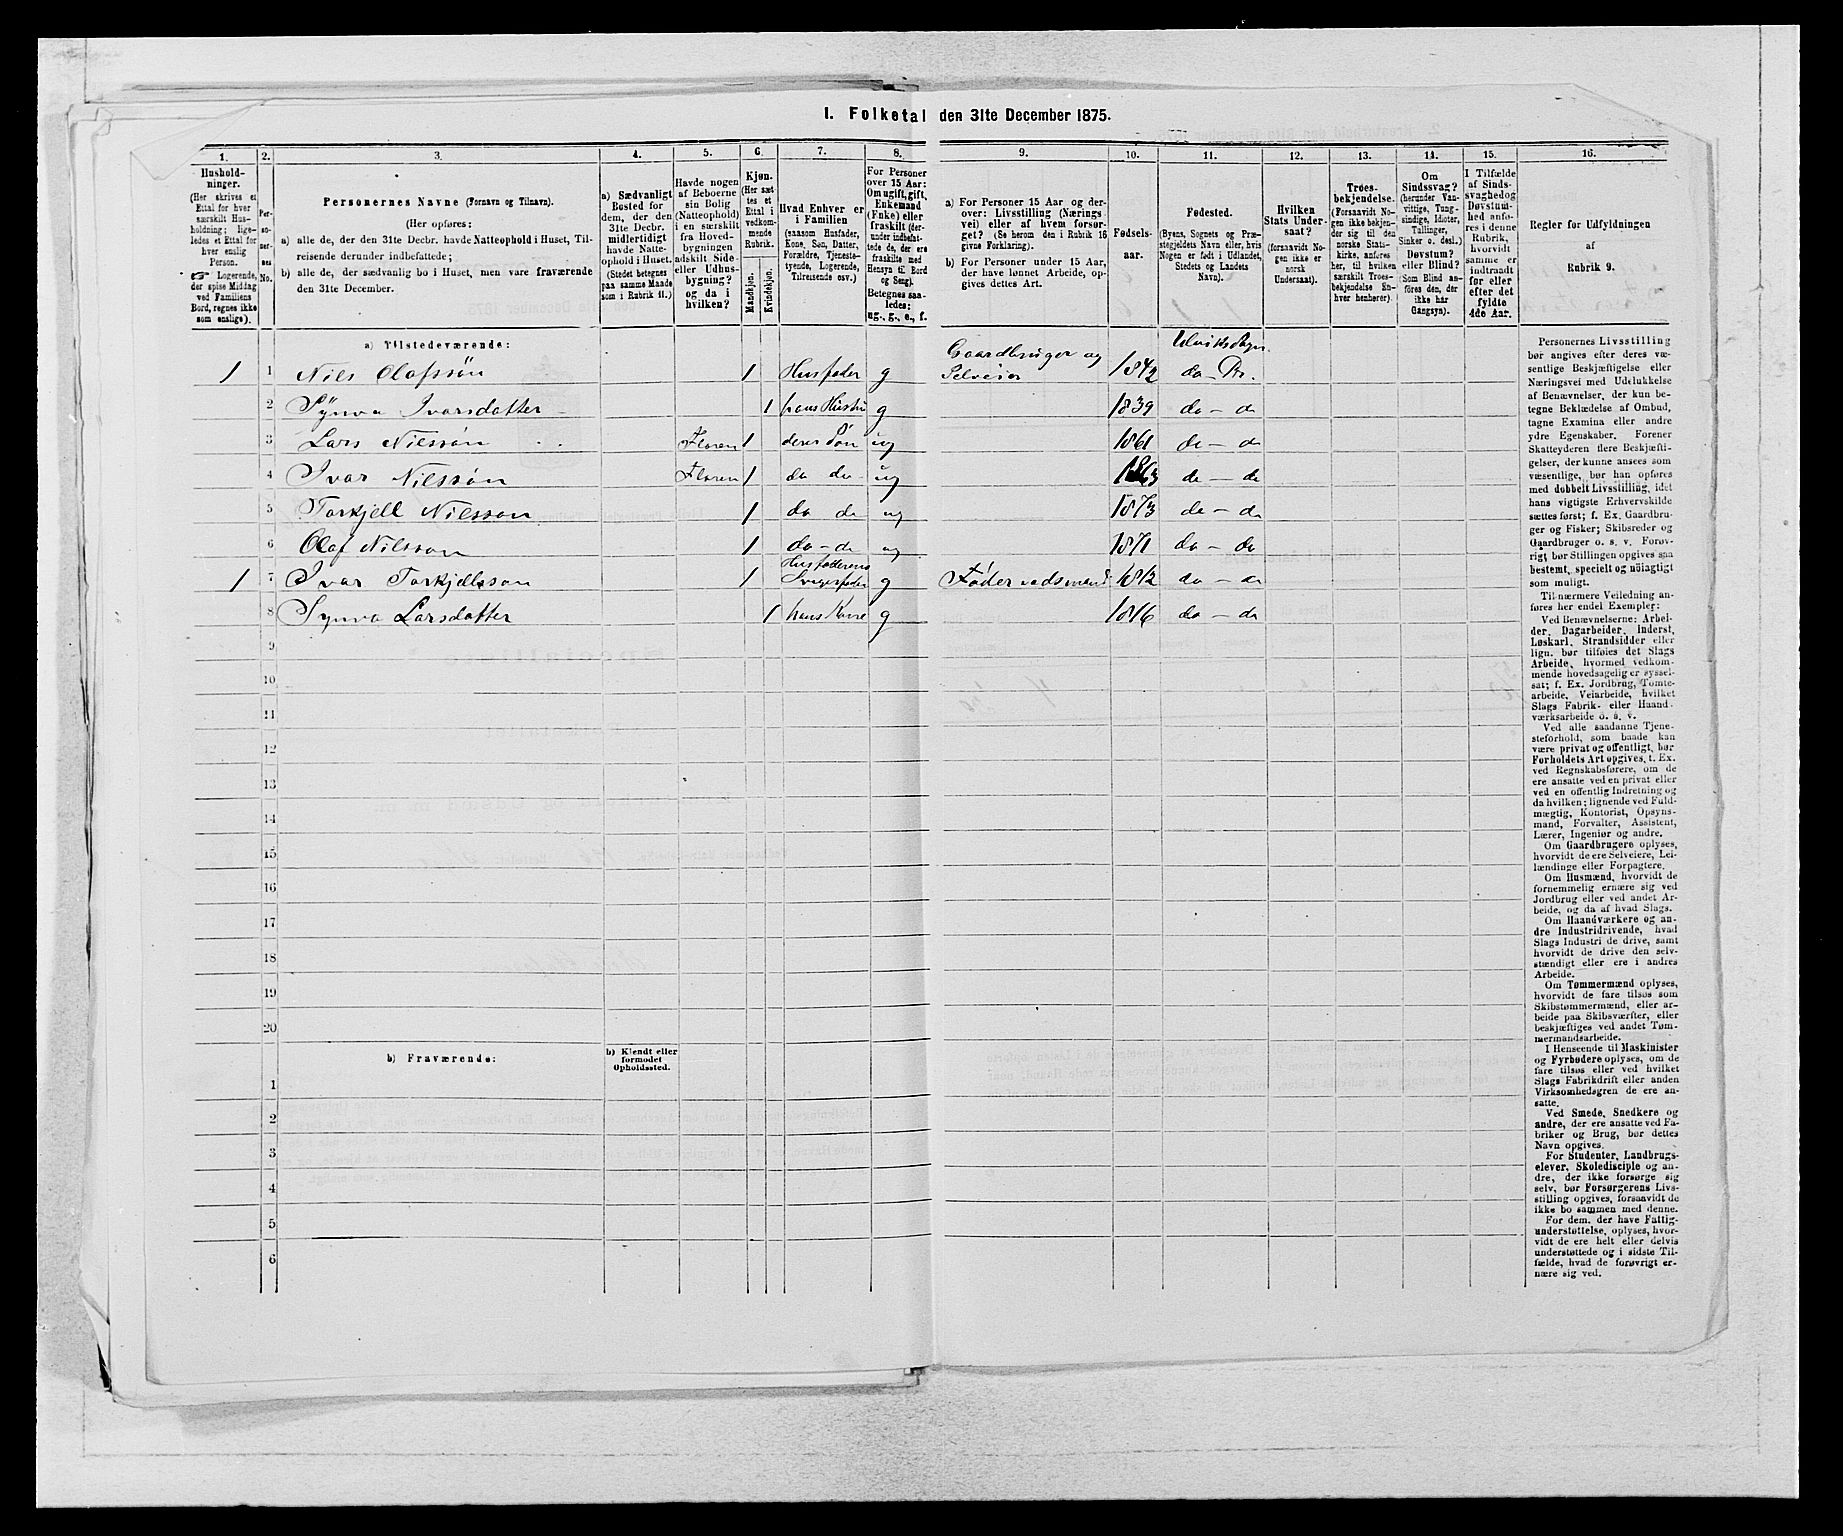 1. Folketal den 31te December 1875.
1. 2. 3. 4. 5. 6. 7. 8. 9. 10. 11. 12. 13. 14. 15. 16.
Hushold-
ninger.
(Her skrives et
Ettal for hver
særskilt Hus-
holdning; lige-
ledes et Ettal for
hver enslig
Person.
☞ Logerende,
der spise Middag
ved Familiens
Bord, regnes ikke
som enslige).
Per-
so-
ner-
nes
No.
Personernes Navne (Fornavn og Tilnavn).
(Her opføres:
a) alle de, der den 31te Decbr. havde Natteophold i Huset, Til-
reisende derunder indbefattede;
b) alle de, der sædvanlig bo i Huset, men vare fraværende
den 31te December.
a) Sædvanligt
Bosted for
dem, der den
31te Decbr.
midlertidigt
havde Natte-
ophold i Huset.
(Stedet betegnes
paa samme Maade
som i Rubrik 11.)
Havde nogen
af Beboerne
sin Bolig
(Natteophold)
i en særskilt
fra Hoved-
bygningen
adskilt Side-
eller Udhus-
bygning?
og da i
hvilken?
Kjøn.
(Her sæt-
tes et
Ettal i
vedkom-
mende
Rubrik.
Mandkjøn.
Kvindekjøn.
Hvad Enhver er
i Familien
(saasom Husfader,
Kone, Søn, Datter,
Forældre, Tjeneste-
tyende, Logerende,
Tilreisende osv.)
For Personer
over 15 Aar:
Om ugift, gift,
Enkemand
(Enke) eller
fraskilt (der-
under indbefat-
tede de, der ere
fraskilte med
Hensyn til Bord
og Seng).
Betegnes saa-
ledes:
ug., g., e., f.
a) For Personer 15 Aar og der-
over: Livsstilling (Nærings
vei) eller af hvem forsør-
get? (Se herom den i Rubrik 16
givne Forklaring).
b) For Personer under 15 Aar,
der have lønnet Arbeide, op-
gives dettes Art.
Fødsels-
aar.
Fødested.
(Byens, Sognets og Præ-
stegjeldets Navn eller, hvis
Nogen er født i Udlandet,
Stedets og Landets
Navn).
Hvilken
Stats Under-
saat?
(forsaavidt No-
gen ikke er
norsk
Undersaat).
Troes-
bekjendelse.
(Forsaavidt No-
gen ikke bekjen-
der sig til den
norske Stats-
kirke, anføres
her, til hvilken
særskilt Troes-
bekjendelse En-
hver henhører).
Om
Sindssvag?
(herunder Van-
vittige, Tung-
sindige, Idioter,
Tullinger,
Sinker o. desl.)
Døvstum?
eller Blind?
(Som Blind an-
føres den, der
ikke har
Gangsyn).
I Tilfælde
af Sinds-
svaghed og
Døvstum-
hed anfø-
res i denne
Rubrik,
hvorvidt
samme er
indtraadt
før eller
efter det
fyldte
4de Aar.
Regler for Udfyldningen
af
Rubrik 9.
a) Tilstedeværende:
1 1 Nils Olafssön 1 Husfader g Gaardbruger og Selveier 1842 do - Pr.
2 Synva Ivarsdatter 1 hans Hustru g 1839 do - do
3 Lars Nilssön Floren 1 deres Sön ug 1861 do - do
4 Ivar Nilssön Floren 1 do do ug 1863 do - do
5 Torkjell Nilsson 1 do do ug 1873 do - do
6 Olaf Nilsson 1 do - do ug 1871 do - do
1 7 Ivar Torkjelsson 1 Husfaderens Svigerfader g Föderaadsmand 1812 do - do
8 Synva Larsdatter 1 hans Kone g 1816 do - do
9
10
11
12
13
14
15
16
17
18
19
20
b) Fraværende:
b) Kjendt eller
formodet
Opholdssted.
1
2
3
4
5
6
Personernes Livsstilling
bør angives efter deres væ-
sentlige Beskjæftigelse eller
Næringsvei med Udelukkelse
af Benævnelser, der kun be-
tegne Beklædelse af Ombud,
tagne Examina eller andre
ydre Egenskaber. Forener
Skatteyderen flere Beskjæfti-
gelser, der kunne ansees som
væsentlige, bør han opføres
med dobbelt Livsstilling, idet
hans vigtigste Erhvervskilde
sættes først; f. Ex. Gaardbru-
ger og Fisker; Skibsreder og
Gaardbruger o. s. v. Forøv-
rigt bør Stillingen opgives saa
bestemt, specielt og nöiagtigt
som muligt.
Til nærmere Veiledning an-
føres her endel Exempler:
Ved Benævnelserne: Arbei-
der, Dagarbeider, Inderst,
Løskarl, Strandsidder eller
lign. bør tilføies det Slags
Arbeide, hvormed vedkom-
mende hovedsagelig er syssel-
sat; f. Ex. Jordbrug, Tomte-
arbeide, Veiarbeide, hvilket
Slags Fabrik- eller Haand-
værksarbeide o. s. v.
Ved alle saadanne Tjene-
steforhold, som baade kan
være privat og offentligt, bør
Forholdets Art opgives, t. Ex.
ved Regnskabsførere, om de
ere ansatte ved en privat eller
ved en offentlig Indretning og
da hvilken; lignende ved Fuld-
mægtig, Kontorist, Opsyns-
mand, Forvalter, Assistent,
Lærer, Ingeniør og andre.
Om Gaardbrugere oplyses,
hvorvidt de ere Selveiere, Lei-
lændinge eller Forpagtere.
Om Husmænd, hvorvidt de
fornemmelig ernære sig ved
Jordbrug eller ved andet Ar-
beide, og da af hvad Slags.
Om Haandværkere og an-
dre Industridrivende, hvad
Slags Industri de drive, samt
hvorvidt de drive den selv-
stændigt eller ere i andres
Arbeide.
Om Tømmermænd oplyses,
hvorvidt de fare tilsøs som
Skibstømmermænd, eller ar-
beide paa Skibsværfter, eller
beskjæftiges ved andet Tøm-
mermandsarbeide.
I Henseende til Maskinister
og Fyrbødere oplyses, om de
fare tilsøs eller ved hvilket
Slags Fabrikdrift eller anden
Virksomhedsgren de ere an-
satte.
Ved Smede, Snedkere og
andre, der ere ansatte ved Fa-
briker og Brug, bør dettes
Navn opgives.
For Studenter, Landbrugs-
elever, Skoledisciple og an-
dre, der ikke forsørge sig
selv, bør Forsørgerens Livs-
stilling opgives, forsaavidt de
ikke bo sammen med denne.
For dem, der have Fattig-
understøttelse, oplyses, hvor-
vidt de ere helt eller delvis
understøttede og i sidste Til-
fælde, hvad de forøvrigt er-
nære sig ved.